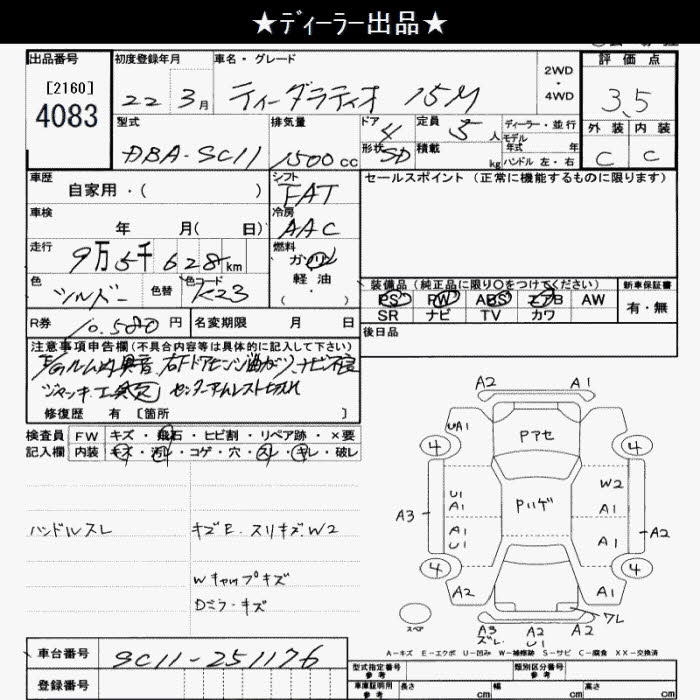 ★ディーラー出品★
出品番号
[2160]
4083
初度登録年月
22 3月
車名・グレード
ティーダラティオ 15M
2WD
・
4WD
評価点
3.5
外装 内装
C C
型式
DBA-SC11
排気量
1500 CC
ドア 4
定員 5 人
形状 SD
積載 kg
ディーラー・並行
モデル年式 年
ハンドル 左・右
車歴
自家用・( )
シフト
FAT
セールスポイント (正常に機能するものに限ります)
車検
年 月( 日)
冷房
AAC
走行
9万5千628km
燃料
ガソリン
軽油
( ・ )
色
シルバー
色替
色コード
K23
装備品 (純正品に限り〇をつけてください)
PS PW ABS エアB AW
SR ナビ TV カワ
新車保証書
有・無
R券 10,580 円
名変期限 月 日
後日品
注意事項申告欄 (不具合内容等は具体的に記入して下さい)
ジャッキ、工具欠 センターアームレスト切れ
修復歴 有 [箇所 ]
検査員
記入欄
FW キズ・飛石・ヒビ割・リペア跡・×要
内装 キズ・汚レ・コゲ・穴・スレ・キレ・破レ
ハンドルスレ
キズE. スリキズ.W2
Wキャップキズ
Dミラーキズ
A2 A1
UA1
Pアセ
4 4
W2
Pハゲ
U1
A1 A1
A3
A1
U1 A1
A2
4 4
A2 A1
ワレ
スペア
A3 A2 A2
ズレ U1
A-キズ E-エクボ U-凹み W-補修跡 S-サビ C-腐食 XX-交換済
車台番号
SC11-251176
登録番号
型式指定番号
参考
類別区分番号
参考
車庫証明用
参考
長さ cm
幅 cm
高さ cm